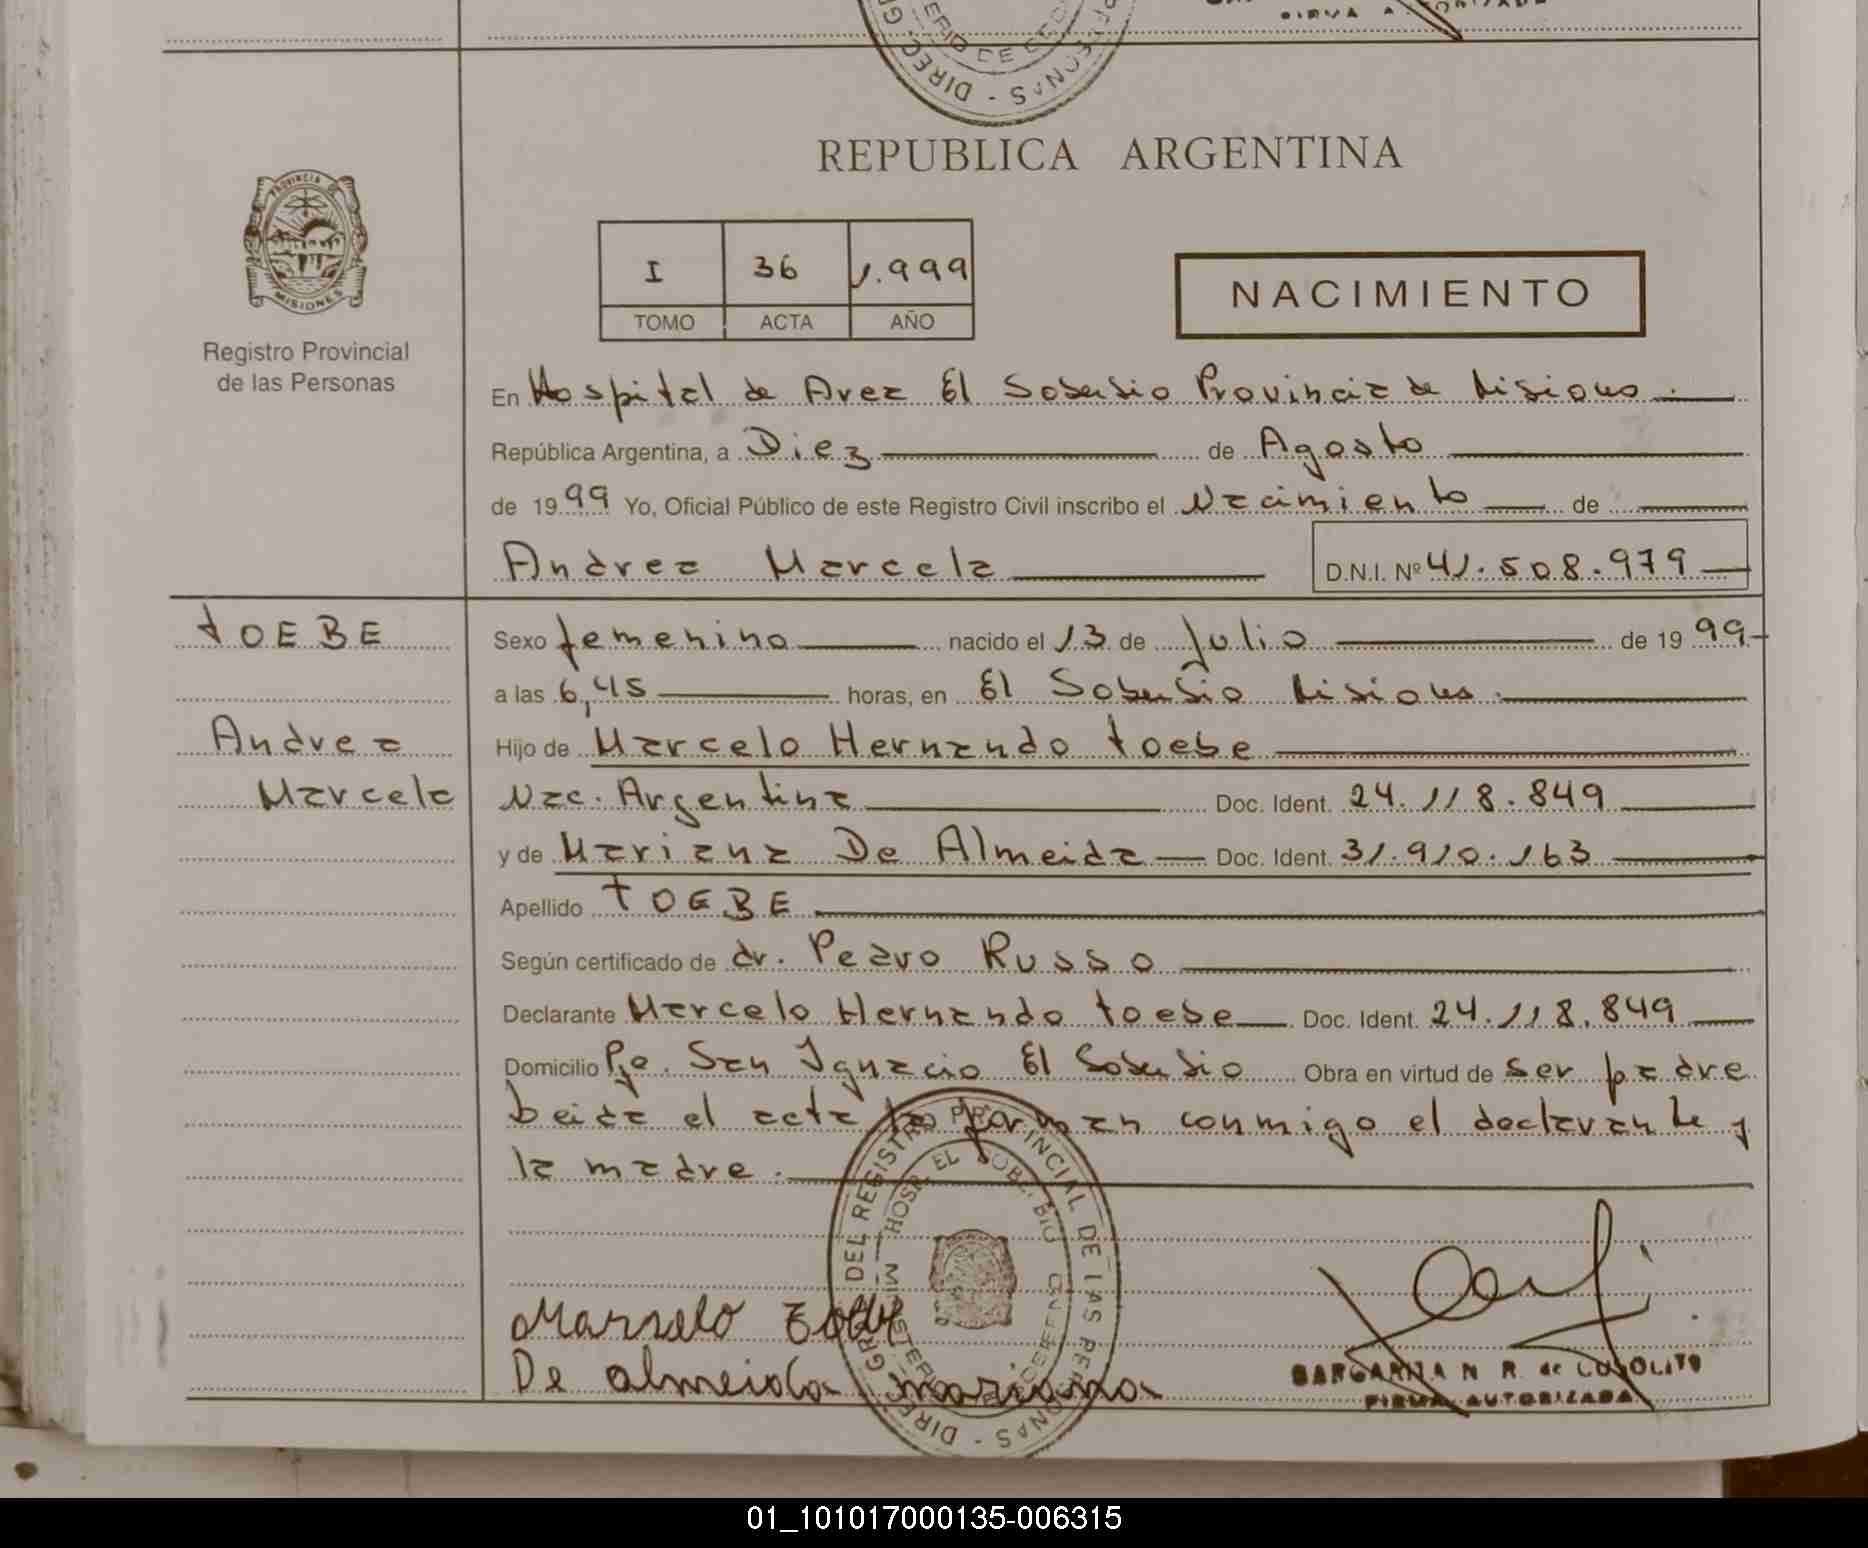 FIRMA AUTORIZADA
DIREC. GR
PERSONAS
REPUBLICA ARGENTINA
PROVINCIA DE
MISIONES
Registro Provincial
de las Personas
I 36 1.999
TOMO ACTA AÑO
NACIMIENTO
En Hospital de Area El Soberbio Provincia de Misiones.
República Argentina, a Diez de Agosto
de 1999 Yo, Oficial Público de este Registro Civil inscribo el Nacimiento de
Andrea Marcela D.N.I. Nº 41.508.979
TOEBE
Sexo femenino nacido el 13 de Julio de 1999
a las 6,45 horas, en El Soberbio Misiones.
Andrea
Hijo de Marcelo Hernando toebe
Marcela
Nac. Argentina Doc. Ident. 24.118.849
y de Mariana De Almeida Doc. Ident. 31.910.163
Apellido TOEBE
Según certificado de dr. Pedro Russo
Declarante Marcelo Hernando toebe Doc. Ident. 24.118.849
Domicilio Pje. San Ignacio El Soberbio Obra en virtud de ser padre
Leida el acta la forman conmigo el declarante y
la madre.
DIREC. GR DEL REGISTRO PROVINCIAL DE LAS PERSONAS
HOSP. EL SOBERBIO
Marselo
De almeida mariana
MARGARITA N R. de
FIRMA AUTORIZADA
01_101017000135-006315